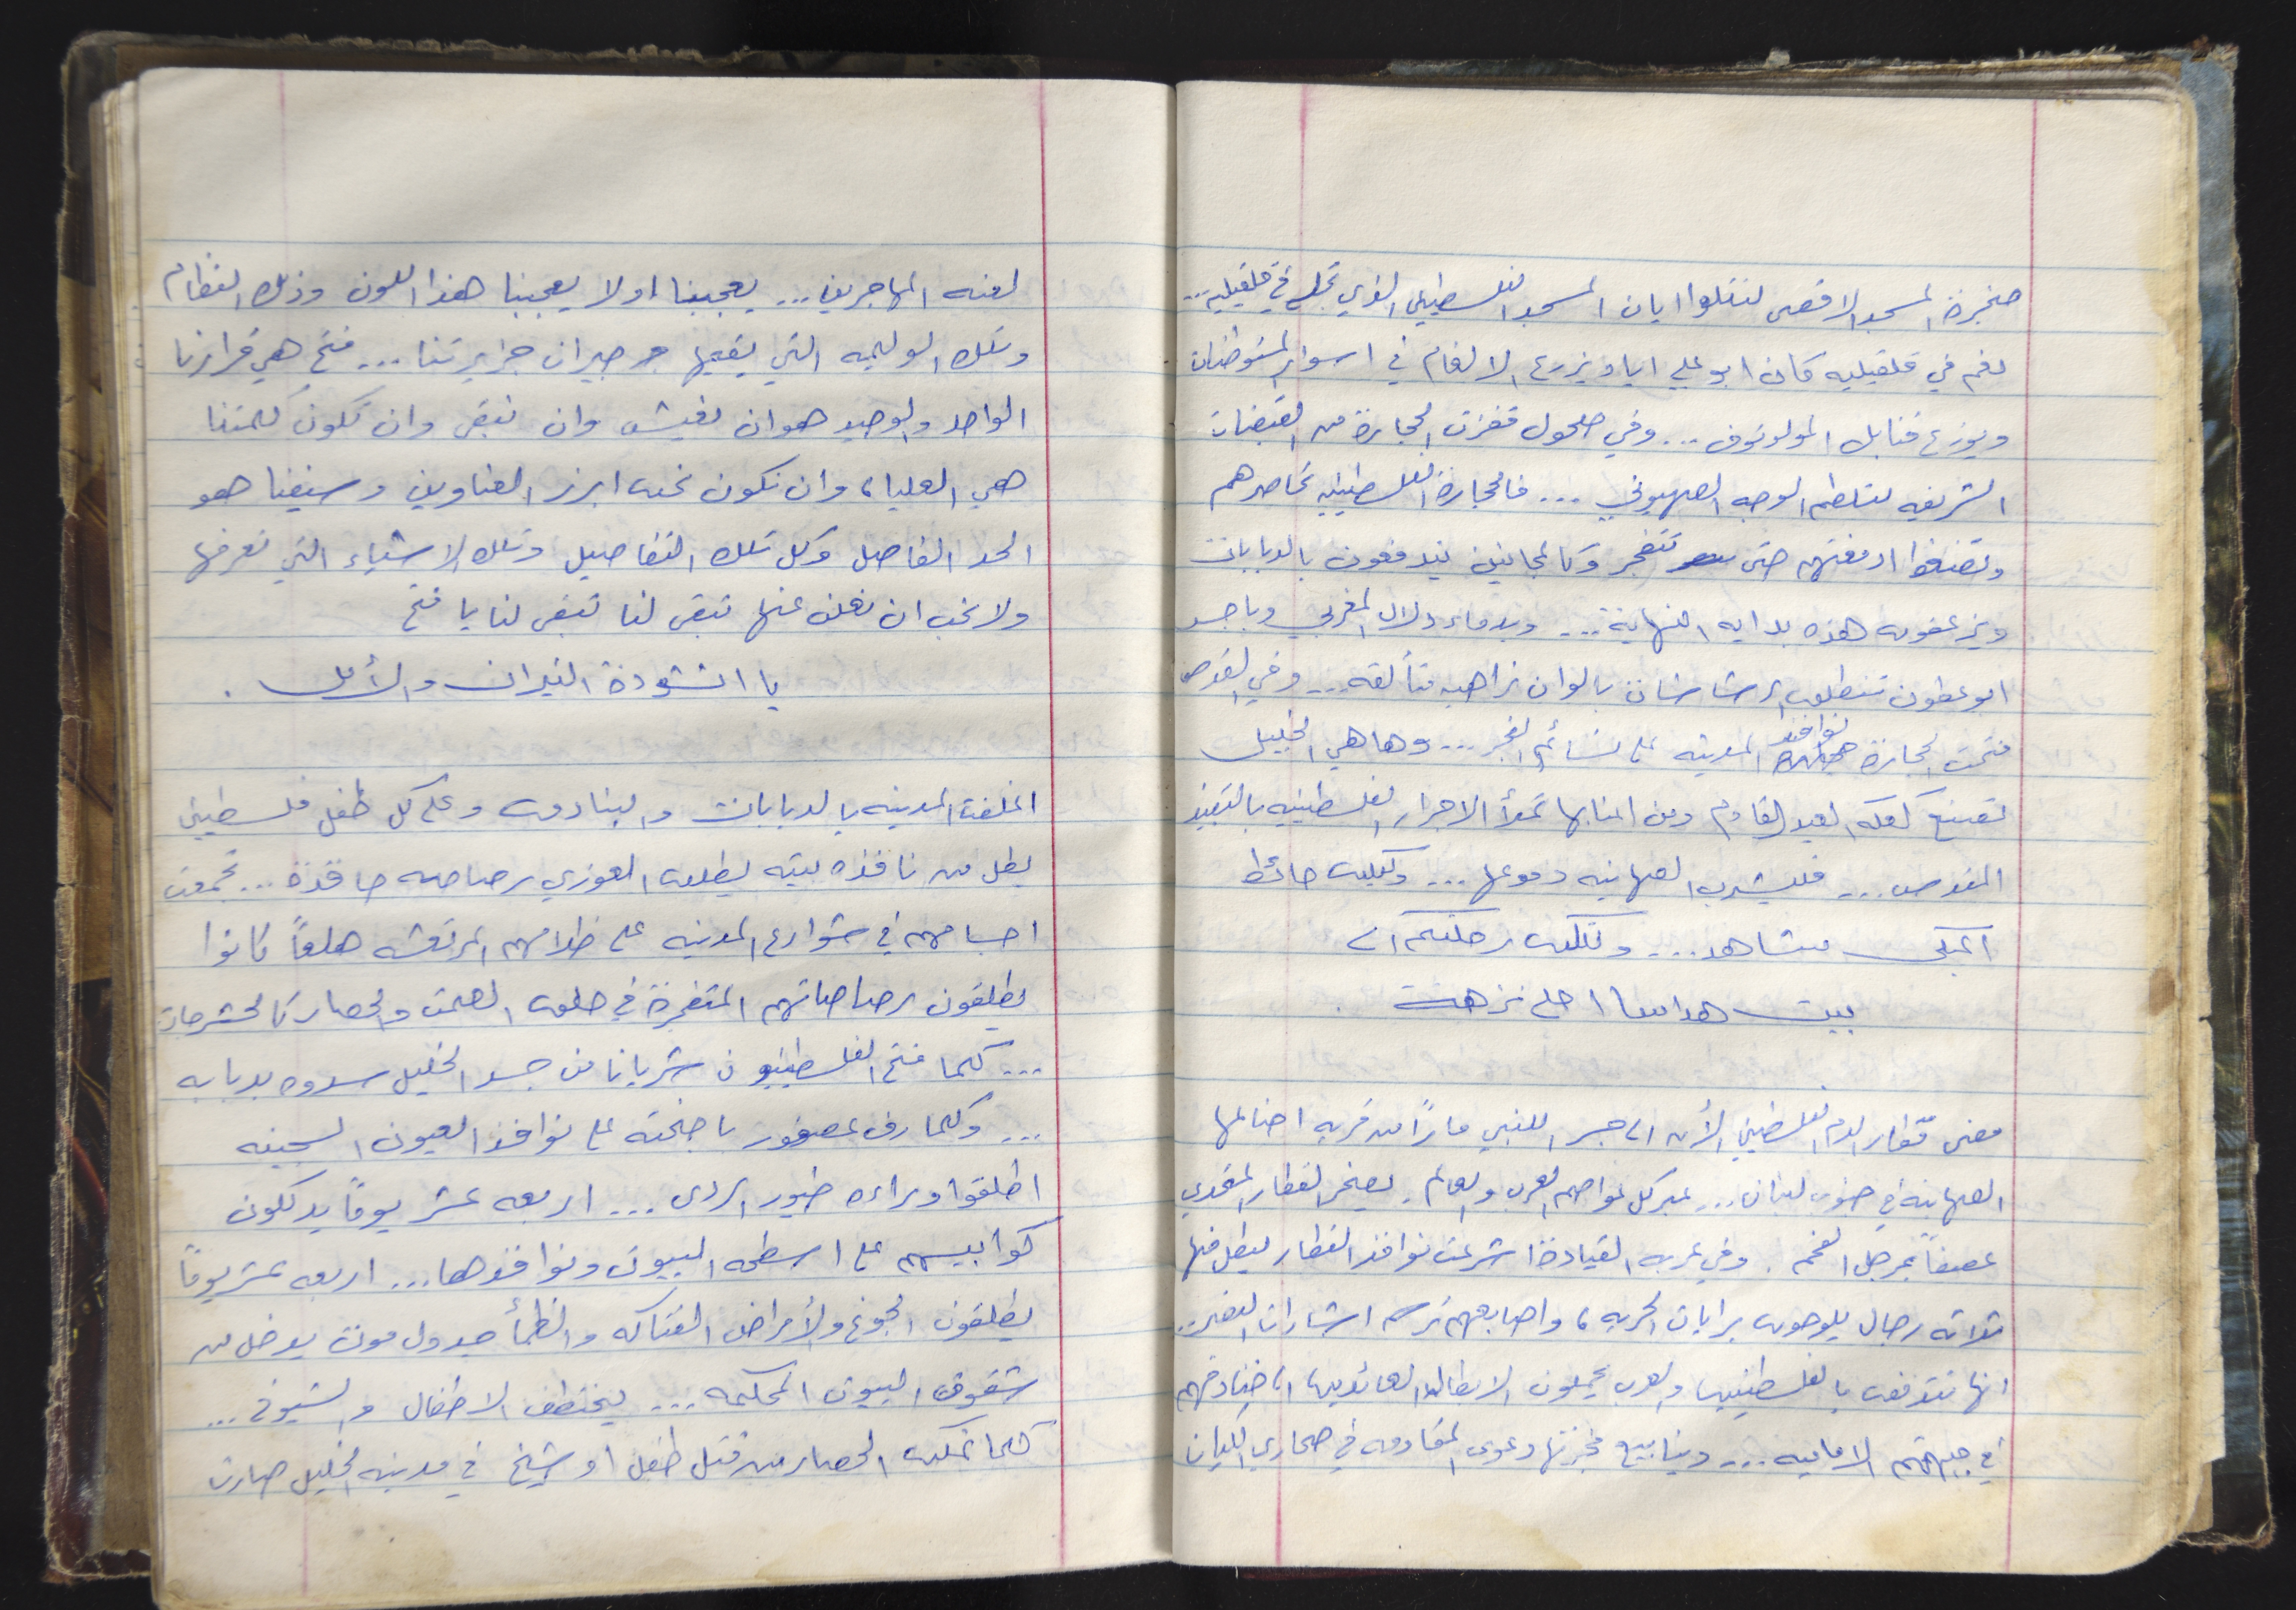 صخرة المسجد الاقصى لتتلوا ايات المسجد الفلسطيني الذي تجلى في قلقيليه...
نعم في قلقيليه كان ابو علي اياد يزرع الالغام في اسوار المستوطنات
ويوزع قنابل المولوتوف... وفي حلحول قفزت الحجارة من القبضات
الشريفه لتلطم الوجه الصهيوني... فالحجارة الفلسطينيه تحاصرهم
وتقذفوا ادمغتهم حتى تنفجر وكالمجانين يندفعون بالدبابات
ويزعقون هذه بدايه النهاية... وبدماء دلال المغربي وباجس
ابو عطون تنطلق الرشاشات بالوان زاهيه متألقه... وفي القدس
فتحت الحجارة نوافذ المدينه على نسائم الفجر... وها هي الخليل
تصنع كعكه العيد القادم ومن اعنابها تملأ الاجرار الفلسطينيه بالنبيذ
المقدس... فليشرب الصهاينه دموعها... وليكن حائط
المبكى شاهد... ولتكن رحلتكم الى
بيت هداسا احلى نزهة.
مضى قطار الدم الفلسطيني الأن الى جسر اللنبي ماراً من قريه احتالها
الصهاينه في جنوب لبنان... عبر كل عواصم العرب والعالم. يصفر القطار المتحدي
عصفاً بمرجل الفحم. وفي عربه القيادة اشرعت نوافذ القطار ليطل منها
ثلاثه رجال يلوحون برايات الحريه، واصابعهم ترسم اشارات النصر..
انها تتدفق بالفلسطينيين والعرب يحملون الابطال العائدين الى خنادقهم
في جبهتهم الاماميه... وينابيع فجرتها دعوى المقاومه في صحاري الكيان
لعنه المهاجرين... يعجبنا او لا يعجبنا هذا اللون وذلك النظام
وتلك الوليمه التي يقيمها جيران جزيرتنا... فتح هي قرارنا
الواحد والوحيد هو ان نعيش وان نبقى وان تكون كلمتنا
هي العليا، وان نكون نحن ابرز العناوين وسيفنا هو
الحد الفاصل وكل تلك التفاصيل وتلك الاشياء التي نعرفها
ولا نحب ان نعلن عنها تبقى لنا تبقى لنا يا فتح
يا انشودة النيران والأمل.
اغلقت المدينه بالدبابات والبنادق وعلى كل طفل فلسطيني
يطل من نافذه بيته يطلق الغوزي رصاصه حاقدة... تجمعت
اجسامهم في شوارع المدينه على ظلالهم المرتعشه هلعاً كانوا
يطلقون رصاصاتهم المتفجرة في حلق الصمت والحصار كالحشرجات
... كلما فتح الفلسطينيون شريانا من جسد الخليل سدوه بدبابه
... وكلما رف عصفور باجنحته على نوافذ العيون السجينه
اطلقوا وراءه طيور الردى... اربعه عشر يوماً يدكلون
كوابيسهم على اسطحه البيوت ونوافذها... اربعه عشر يوماً
يطلقون الجوع والأمراض الفتاكه والظمأ جدول موت يدخل من
شقوق البيوت المحكمه... يختطف الاطفال والشيوخ...
كلما تمكن الحصار من قتل طفل او شيخ في مدينه الخليل صارت